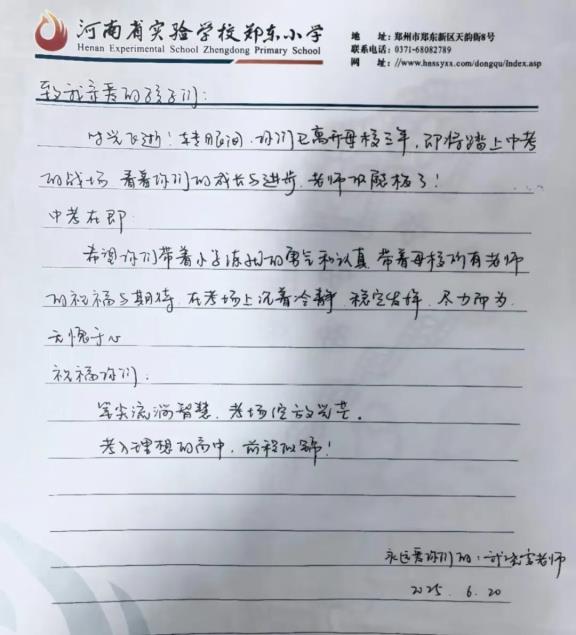 河南省实验学校郑东小学
Henan Experimental School Zhengdong Primary School
地 址：郑州市郑东新区天韵街8号
联系电话：0371-68082789
网 址：//www.hnssyxx.com/dongqu/Index.asp
致我亲爱的孩子们：
时光飞逝！转眼间，你们已离开母校三年，即将踏上中考
的战场，看着你们的成长与进步，老师欣慰极了！
中考在即
希望你们带着小学练的勇气和认真，带着母校所有老师
的祝福与期待，在考场上沉着冷静，稳定发挥，尽力而为，
无愧于心
祝福你们：
笔尖流淌智慧，考场绽放光芒。
考入理想的高中，前程似锦！
永远爱你们的：老师
2025. 6. 20